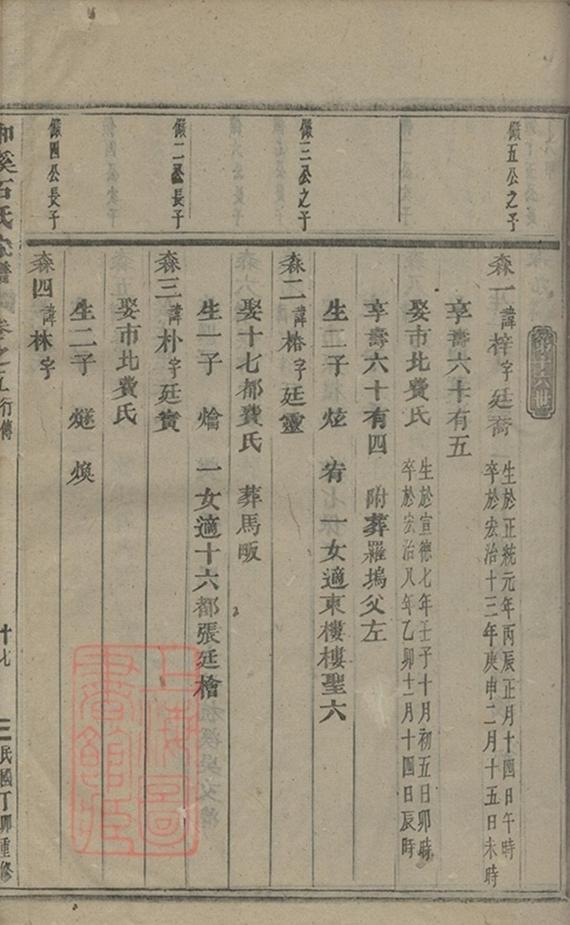 第十六世
儼五公之子
森一諱梓字廷喬
生於正統元年丙辰正月十四日午時
卒於宏治十三年庚申二月十五日未時
享壽六十有五
娶市北費氏
生於宣德七年壬子十月初五日卯時
卒於宏治八年乙卯十二月十四日辰時
享壽六十有四 附葬羅塢父左
生二子 炫 一女適東樓樓聖六
儼三公之子
森二諱椿字廷靈
娶十七都費氏 葬馬畈
生一子 燴 一女適十六都張廷檜
儼二公長子
森三諱朴字廷賓
娶市北費氏
生二子 燧 煥
儼四公長子
森四諱林字
和溪石氏宗譜 卷之 行傳 十七 民國丁卯重修
上海圖書館藏